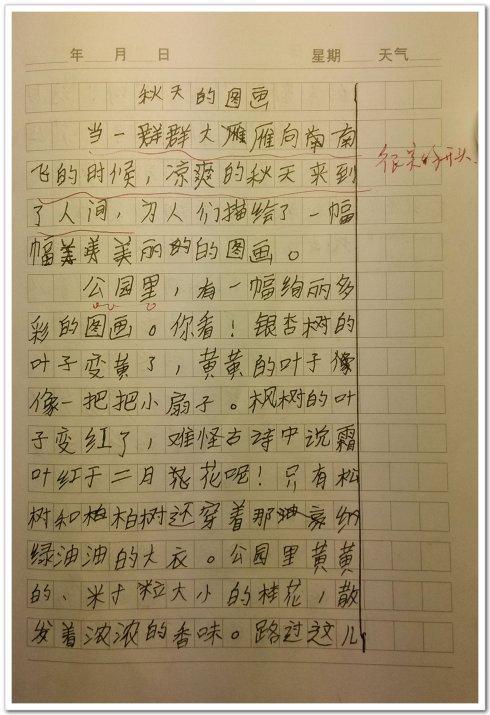 年 月 日 星期 天气
秋天的图画
当一群群大雁雁向南南
很美的开头
飞的时候，凉爽的秋天来到
了人间，为人们描绘了一幅
幅美美美丽的的图画。
公园里，有一幅绚丽多
彩的图画。你看！银杏树的
叶子变黄了，黄黄的叶子像
像一把把小扇子。枫树的叶
子变红了，难怪古诗中说霜
叶红于二月花呢！只有松
树和柏柏树还穿着那
绿油油的大衣。公园里黄黄
的、米粒大小的桂花，散
发着浓浓的香味。路过这儿